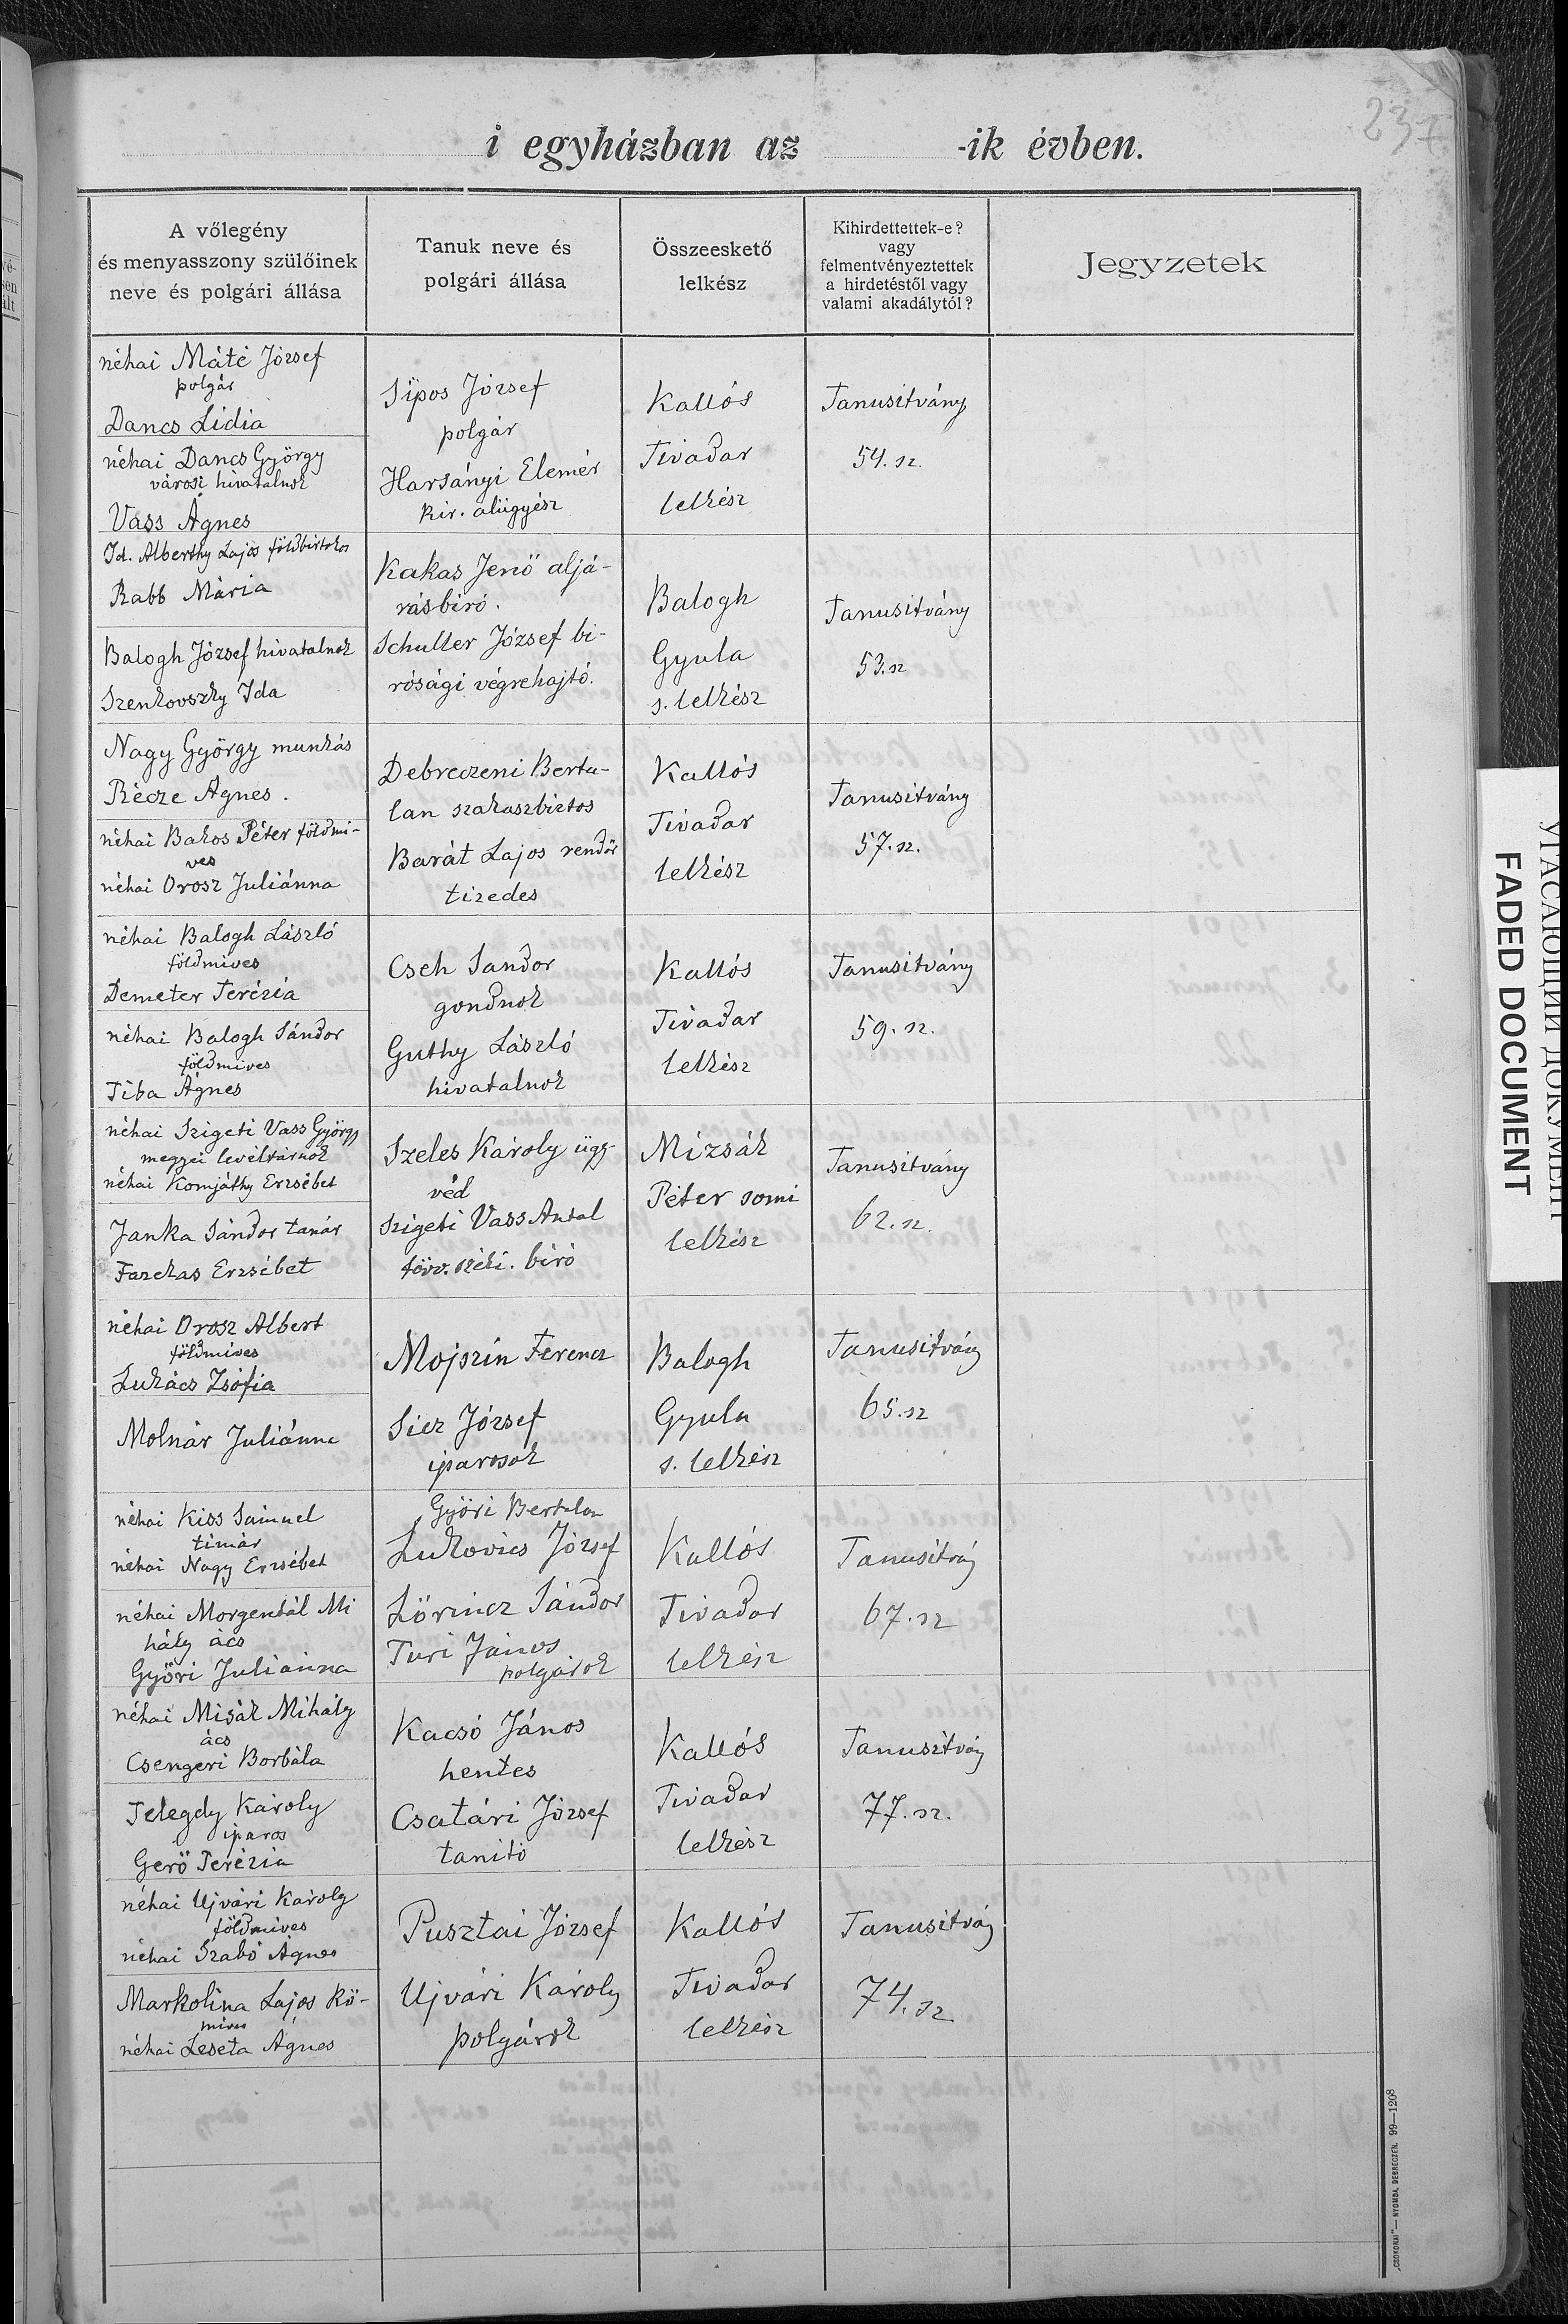 237
i egyházban az -ik évben.
A vőlegény
és menyasszony szülőinek
neve és polgári állása
Tanuk neve és
polgári állása
Összeeskető
lelkész
Kihirdettettek-e?
vagy
felmentvényeztettek
a hirdetéstől vagy
valami akadálytól?
Jegyzetek
néhai Máté József
polgár
Dancs Lidia
néhai Dancs György
városi hivatalnok
Vass Ágnes
Sipos József
polgár
Harsányi Elemér
kir. alügyész
Kallós
Tivadar
lelkész
Tanusitvány
54. sz.
Id. Alberthy Lajos földbirtokos
Rabb Mária
Balogh József hivatalnok
Szenkovszky Ida
Kakas Jenő aljá-
rásbiró.
Schuller József bi-
rósági végrehajtó.
Balogh
Gyula
s. lelkész
Tanusitvány
53. sz
Nagy György munkás
Récze Ágnes.
néhai Bakos Péter földmi-
ves
néhai Orosz Juliánna
Debreczeni Berta-
lan szakaszbiztos
Barát Lajos rendőr
tizedes
Kallós
Tivadar
lelkész
Tanusitvány
57. sz.
néhai Balogh László
földmives
Demeter Terézia
néhai Balogh Sándor
földmives
Tiba Ágnes
Cseh Sandor
gondnok
Guthy László
hivatalnok
Kallós
Tivadar
lelkész
Tanusitvány
59. sz.
néhai Szigeti Vass György
megyei levéltárnok
néhai Komjáthy Erzsébet
Janka Sándor tanár
Farkas Erzsébet
Szeles Károly ügy-
véd
Szigeti Vass Antal
törv. széki. biró
Mizsák
Péter somi
lelkész
Tanusitvány
62. sz.
néhai Orosz Albert
földmives
Lukács Zsófia
Molnár Juliánna
Mojszin Ferencz
Sicz József
iparosok
Balogh
Gyula
s. lelkész
Tanusitvány
65. sz
néhai Kiss Sámuel
timár
néhai Nagy Erzsébet
néhai Morgentál Mi
hály ács
Győri Juliánna
Győri Bertalan
Lukovics József
Lőrincz Sándor
Turi János
polgárok
Kallós
Tivadar
lelkész
Tanusitvány
67. sz
néhai Misák Mihály
ács
Csengeri Borbála
Telegdy Károly
iparos
Gerő Terézia
Kacsó János
hentes
Csatári József
tanitó
Kallós
Tivadar
lelkész
Tanusitvány
77. sz.
néhai Ujvári Károly
földmives
néhai Szabó Ágnes
Markolina Lajos kő-
mives
néhai Leseta Ágnes
Pusztai József
Ujvári Károly
polgárok
Kallós
Tivadar
lelkész
Tanusitvány
74. sz
УГАСАЮЩИЙ ДОКУМЕНТ
FADED DOCUMENT
„CSOKONAI"—NYOMDA, DEBRECZEN. 99—1208